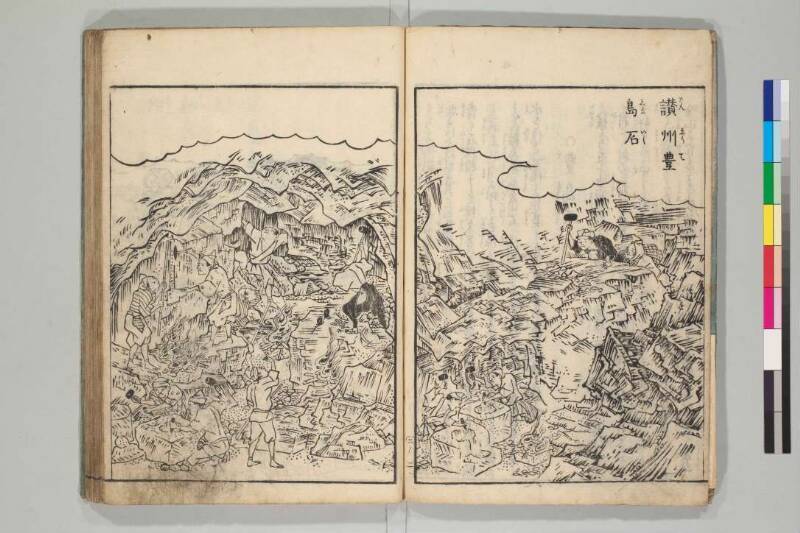 讃州豊
島石